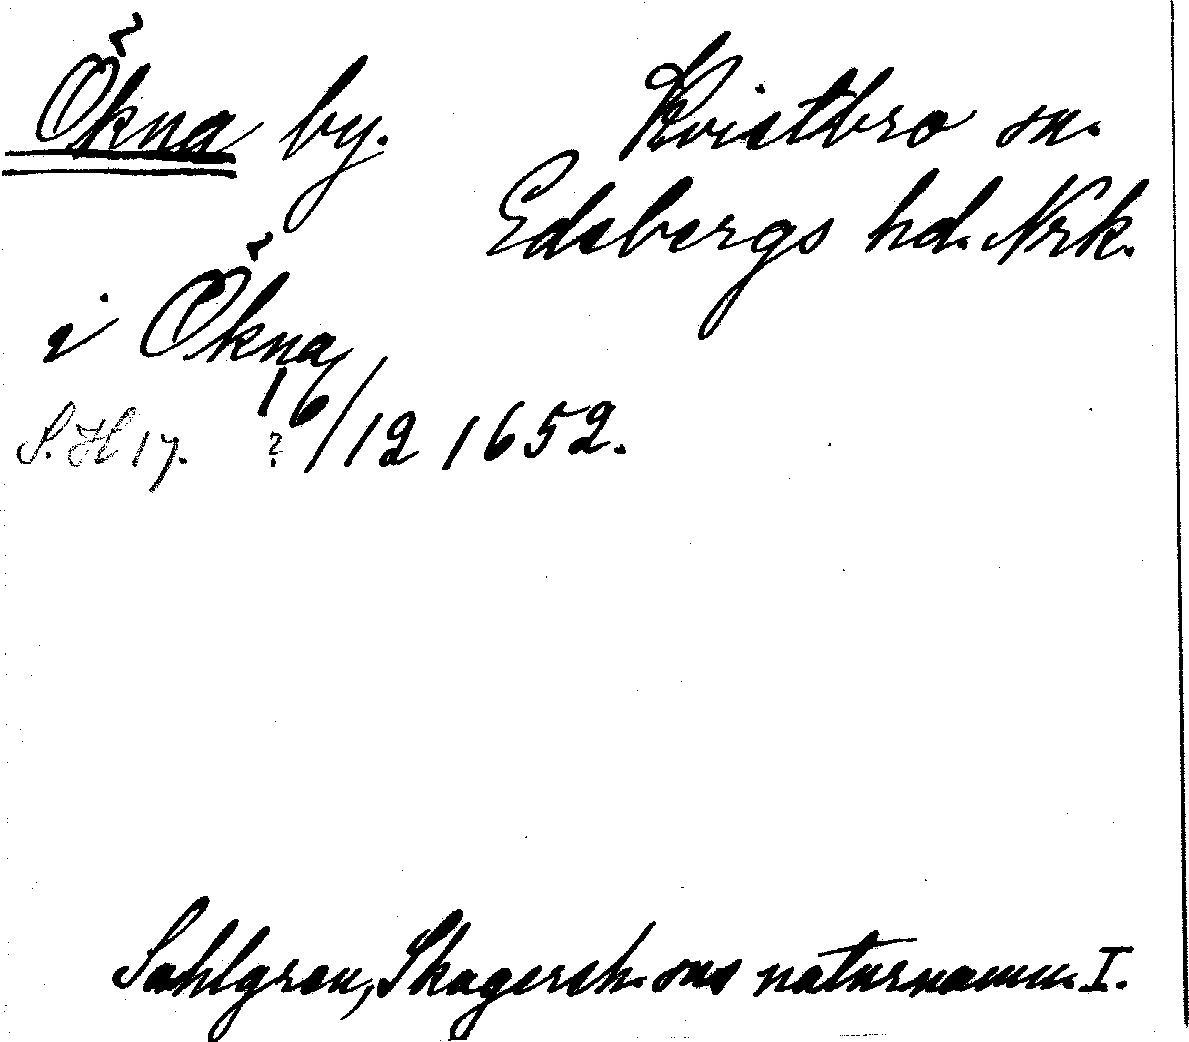 Ökna by. Kvistbro sn.
Edsbergs hd. Nrk.
i Ökna
S. H 17. ? 16/12 1652.
Sahlgren, Skagersh. sns naturnamn. I.